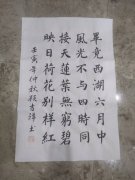 畢竟西湖六月中
風光不与四時同
接天蓮葉無窮碧
映日荷花別样红
壬寅年仲秋